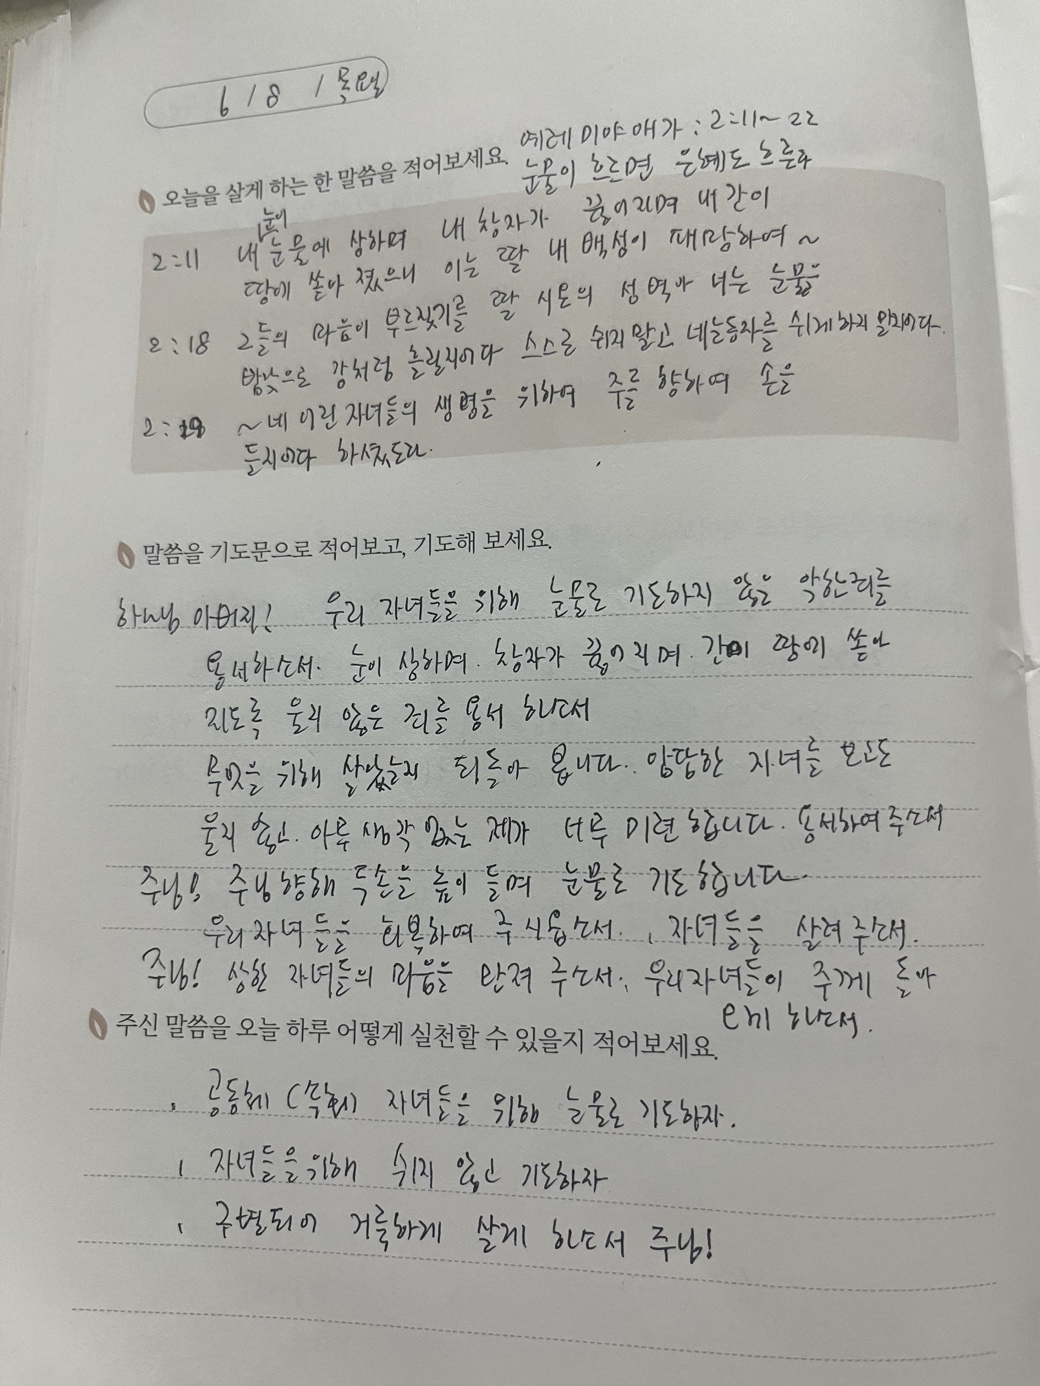 6 / 8 / 목요일
예레미야 애가 : 2:11~22
오늘을 살게 하는 한 말씀을 적어보세요.
눈물이 흐르면 은혜도 흐른다
눈이
2:11 내 눈물에 상하며 내 창자가 끊어지며 내 간이
땅에 쏟아 졌으니 이는 딸 내 백성이 패망하여 ~
2:18 그들의 마음이 부르짖기를 딸 시온의 성벽아 너는 눈물을
밤낮으로 강처럼 흘릴지어다 스스로 쉬지 말고 네 눈동자를 쉬게 하지 말지어다.
2:19 ~ 네 어린 자녀들의 생명을 위하여 주를 향하여 손을
들지어다 하셨도다.
말씀을 기도문으로 적어보고, 기도해 보세요.
하나님 아버지! 우리 자녀들을 위해 눈물로 기도하지 않은 악한 죄를
용서하소서. 눈이 상하며. 창자가 끊어지며. 간이 땅에 쏟아
지도록 울지 않은 죄를 용서 하소서
무엇을 위해 살았는지 되돌아 봅니다. 암담한 자녀를 보고도
울지 않고. 아무 생각 없는 제가 너무 미련합니다. 용서하여 주소서
주님! 주님 향해 두손을 높이 들며 눈물로 기도합니다.
우리 자녀들을 회복하여 주시옵소서. 자녀들을 살려 주소서.
주님! 상한 자녀들의 마음을 만져 주소서. 우리 자녀들이 주께 돌아
오게 하소서.
주신 말씀을 오늘 하루 어떻게 실천할 수 있을지 적어보세요.
공동체 (목회) 자녀들을 위해 눈물로 기도하자.
자녀들을 위해 쉬지 않고 기도하자
구별되어 거룩하게 살게 하소서 주님!